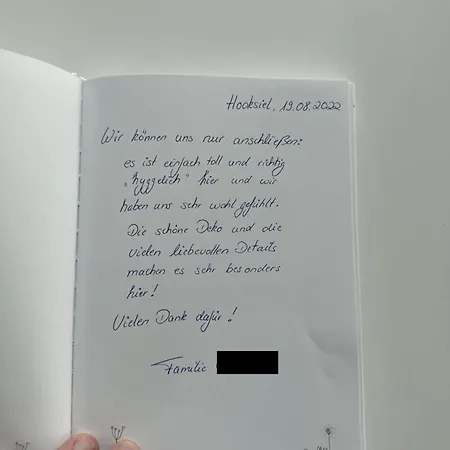 Hooksiel, 19.08.2022
Wir können uns nur anschließen:
es ist einfach toll und richtig
„hyggelich" hier und wir
haben uns sehr wohl gefühlt.
Die schöne Deko und die
vielen liebevollen Details
machen es sehr besonders
hier!
Vielen Dank dafür!
Familie